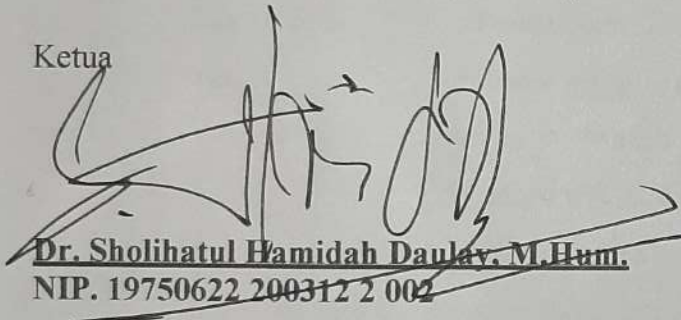 Ketua
Dr. Sholihatul Hamidah Daulay, M.Hum.
NIP. 19750622 200312 2 002